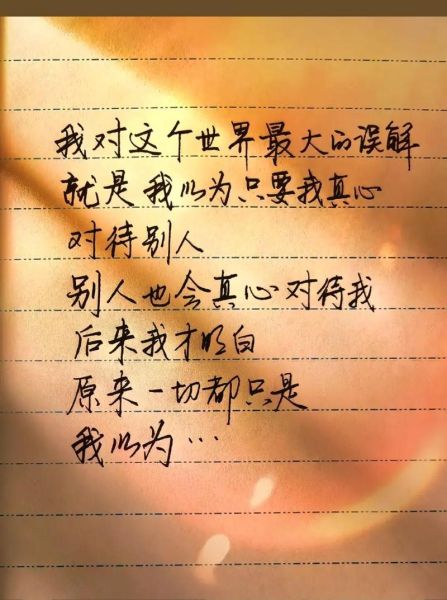 我对这个世界最大的误解
就是我以为只要我真心
对待别人
别人也会真心对待我
后来我才明白
原来一切都只是
我以为…